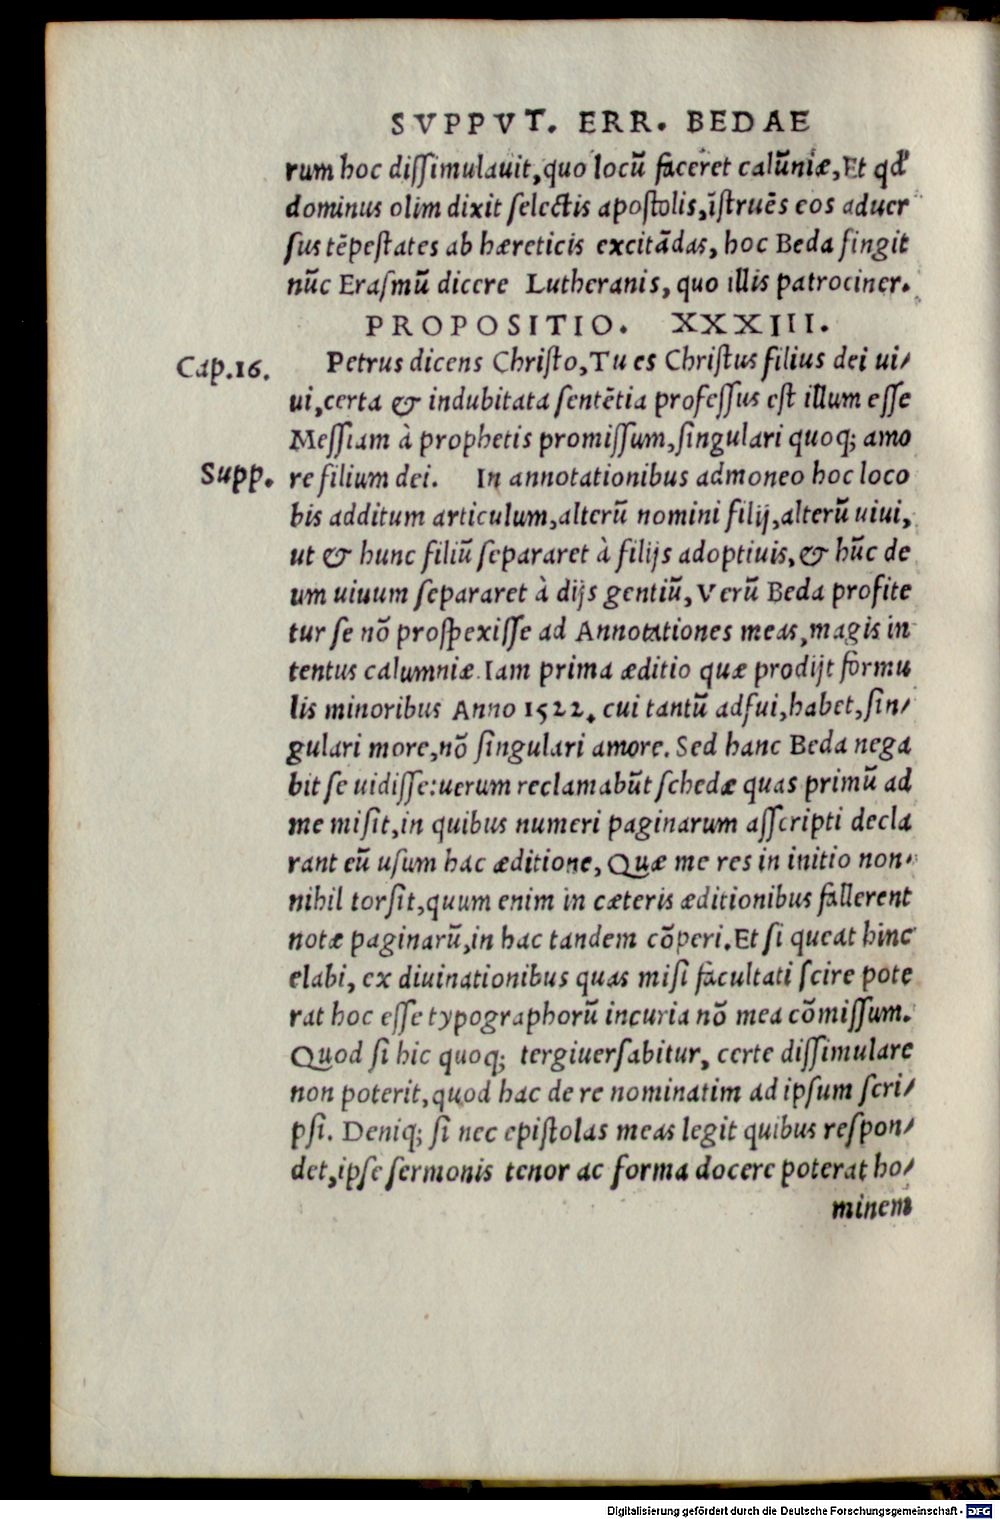 SVPPVT. ERR. BEDAE
rum hoc diſſimulauit, quo locũ faceret calũniæ, Et qđ
dominus olim dixit ſelectis apoſtolis, ĩſtruẽs eos aduer
ſus tẽpeſtates ab hæreticis excitãdas, hoc Beda fingit
nũc Eraſmũ dicere Lutheranis, quo illis patrociner.
PROPOSITIO. XXXIII.
Cap.16. Petrus dicens Chriſto, Tu es Chriſtus filius dei ui/
ui, certa & indubitata ſentẽtia profeſſus eſt illum eſſe
Meſſiam à prophetis promiſſum, ſingulari quoq; amo
Supp. re filium dei. In annotationibus admoneo hoc loco
bis additum articulum, alterũ nomini filij, alterũ uiui,
ut & hunc filiũ ſepararet à filijs adoptiuis, & hũc de
um uiuum ſepararet à dijs gentiũ, Verũ Beda profite
tur ſe nõ proſpexiſſe ad Annotationes meas, magis in
tentus calumniæ. Iam prima æditio quæ prodijt formu
lis minoribus Anno 1522. cui tantũ adfui, habet, ſin/
gulari more, nõ ſingulari amore. Sed hanc Beda nega
bit ſe uidiſſe: uerum reclamabũt ſchedæ quas primũ ad
me miſit, in quibus numeri paginarum aſſcripti decla
rant eũ uſum hac æditione, Quæ me res in initio non/
nihil torſit, quum enim in cæteris æditionibus fallerent
notæ paginarũ, in hac tandem cõperi. Et ſi queat hinc
elabi, ex diuinationibus quas miſi facultati ſcire pote
rat hoc eſſe typographorũ incuria nõ mea cõmiſſum.
Quod ſi hic quoq; tergiuerſabitur, certe diſſimulare
non poterit, quod hac de re nominatim ad ipſum ſcri/
pſi. Deniq; ſi nec epiſtolas meas legit quibus reſpon/
det, ipſe ſermonis tenor ac forma docere poterat ho/
minem
Digitalisierung gefördert durch die Deutsche Forschungsgemeinschaft - DFG